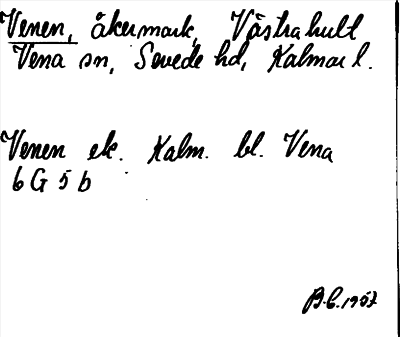 Venen, åkermark, Västrahult
Vena sn, Sevede hd, Kalmar l.
Venen ek. Kalm. bl. Vena
6 G 5 b
B.C. 1957